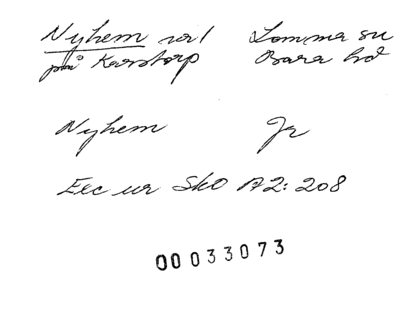 Nyhem nr 1 Lomma sn
på Karstorp Bara hd
Nyhem Jr
Exc ur SkO A2:208
00033073